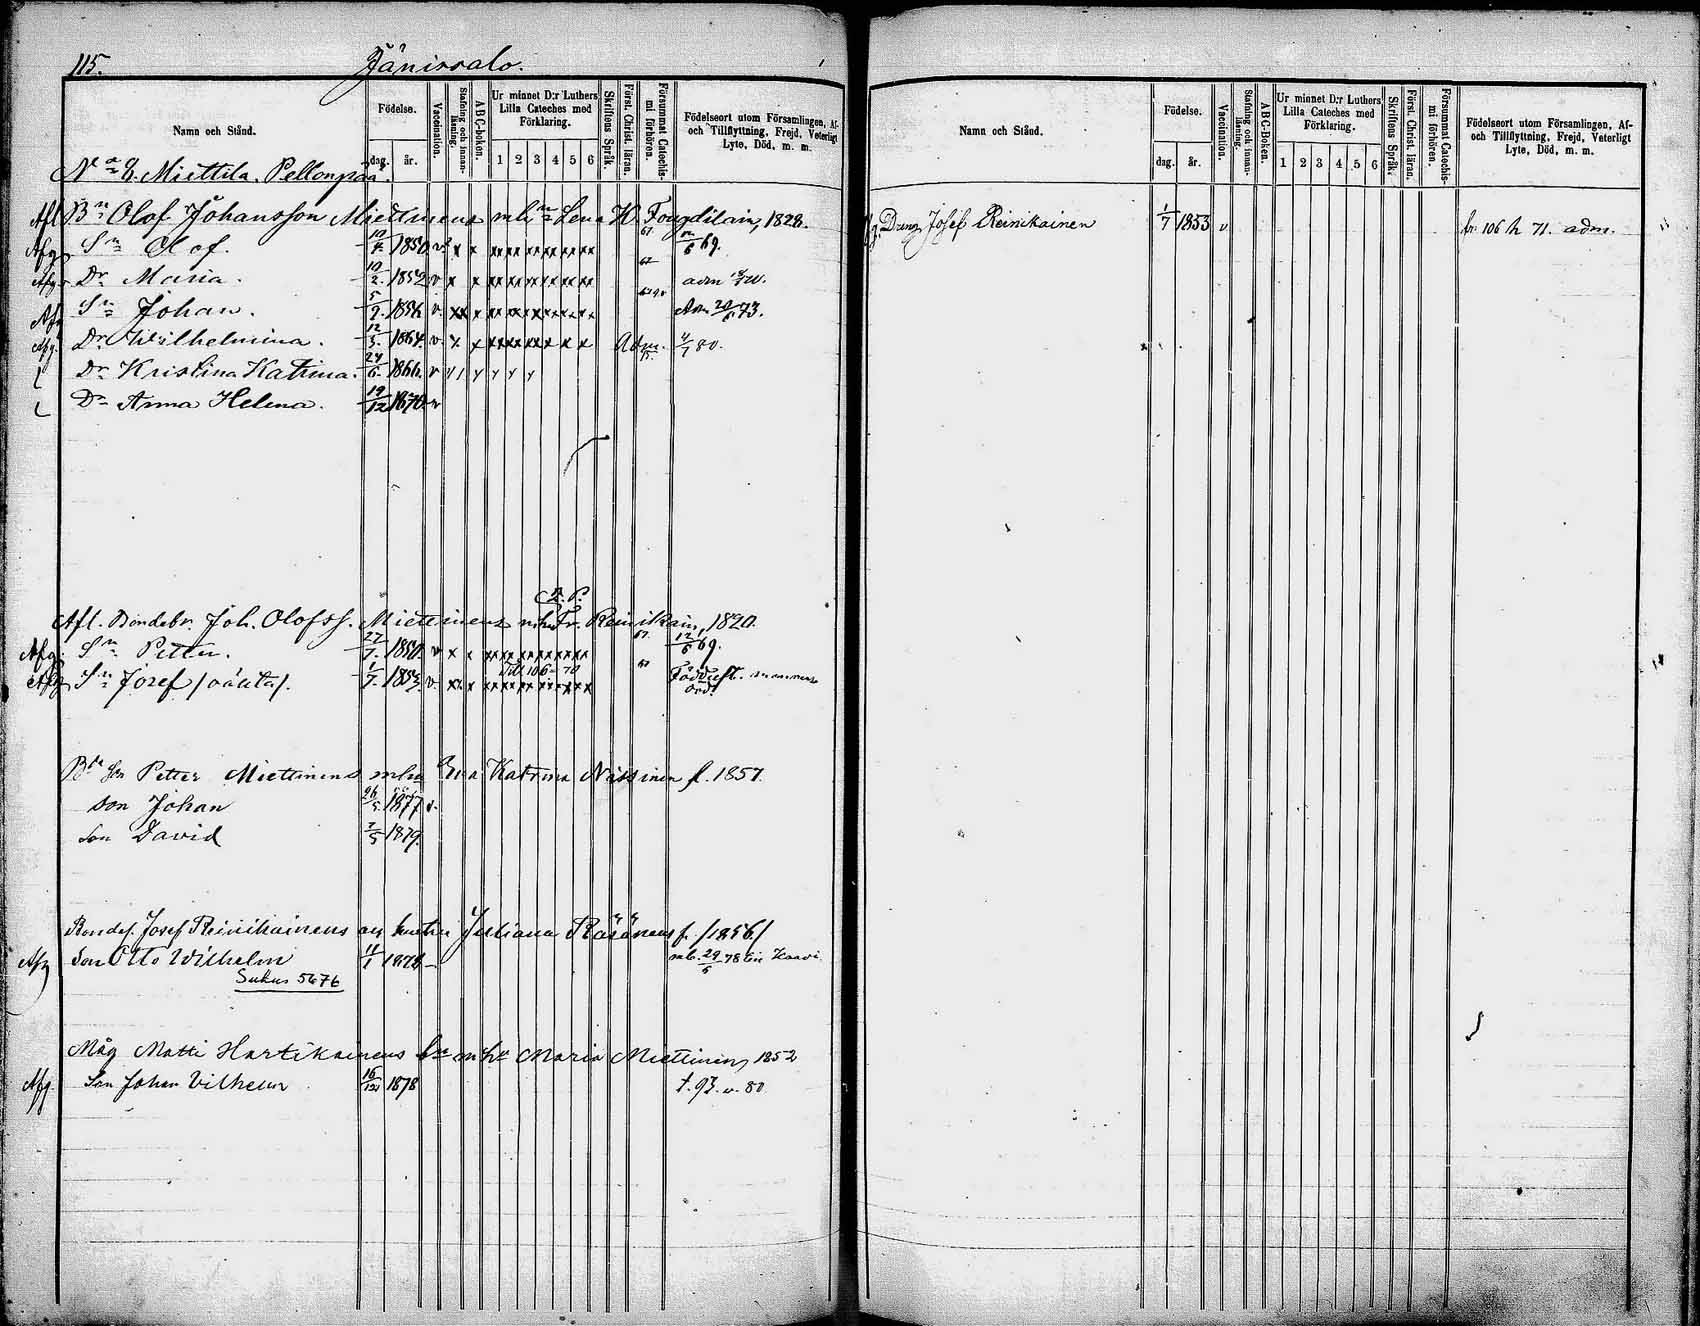 115. Jänissalo.
Namn och Stånd.
Födelse.
dag. år.
Vaccination.
Stafning och innanläsning.
ABC-boken.
Ur minnet D:r Luthers Lilla Cateches med Förklaring.
1 2 3 4 5 6
Skriftens Språk.
Först. Christ. läran.
Försummat Catechismi förhören.
Födelseort utom Församlingen, Af- och Tillflyttning, Frejd, Veterligt Lyte, Död, m. m.
Miettila. Pellonpää.
Afl Bn Olof Johansson Miettinens mhu Lena H. Fougdilain, 1828.
Afg Sn Olof. 1850 v x x 67 69.
Afg Dr Maria. 10/2. 1852 v x x 67 adm
Afg Sn Johan. 5/2. 1856 v. xx x Adm 73.
Afg. Dr. Wilhelmina. 12/3. 1864. v. x x Adm. 4/7 80.
Dr Kristina Katrina. 24/6. 1866. v
Dr Anna Helena. 19/12 1870. v
Afl. Bondebr. Joh. Olofss. Miettinens mhu Fr. Reinikain, 1820.
Afg. Sn Petter. 27/7. 1850. v x x 67. 12/6 69.
Afg Sn Josef /oäkta/. 1/7. 1853. v. xx x Till 106 70 67
Petter Miettinens mhu Eva Katrina Nissinen f. 1857.
son Johan 26/5. 1877 v.
Son David 1879.
Bondes. Josef Reinikainens hustru Juliana Räsänens f. /1856/
Afg Son Otto Wilhelm 11/1 1878 mb. 29/6 78 Kaavi
Sukus 5676
Måg Matti Hartikainens mhu Maria Miettinen, 1852
Afg. Son Johan Vilhelm 16/12 1878 t. 93. v. 80
Namn och Stånd.
Födelse.
dag. år.
Vaccination.
Stafning och innanläsning.
ABC-Boken.
Ur minnet D:r Luthers Lilla Cateches med Förklaring.
1 2 3 4 5 6
Skriftens Språk.
Först. Christ. läran.
Försummat Catechismi förhören.
Födelseort utom Församlingen, Af- och Tillflyttning, Frejd, Veterligt Lyte, Död, m. m.
Dreng Josef Reinikainen 1/7 1853 v fr. 106 h 71. adm.